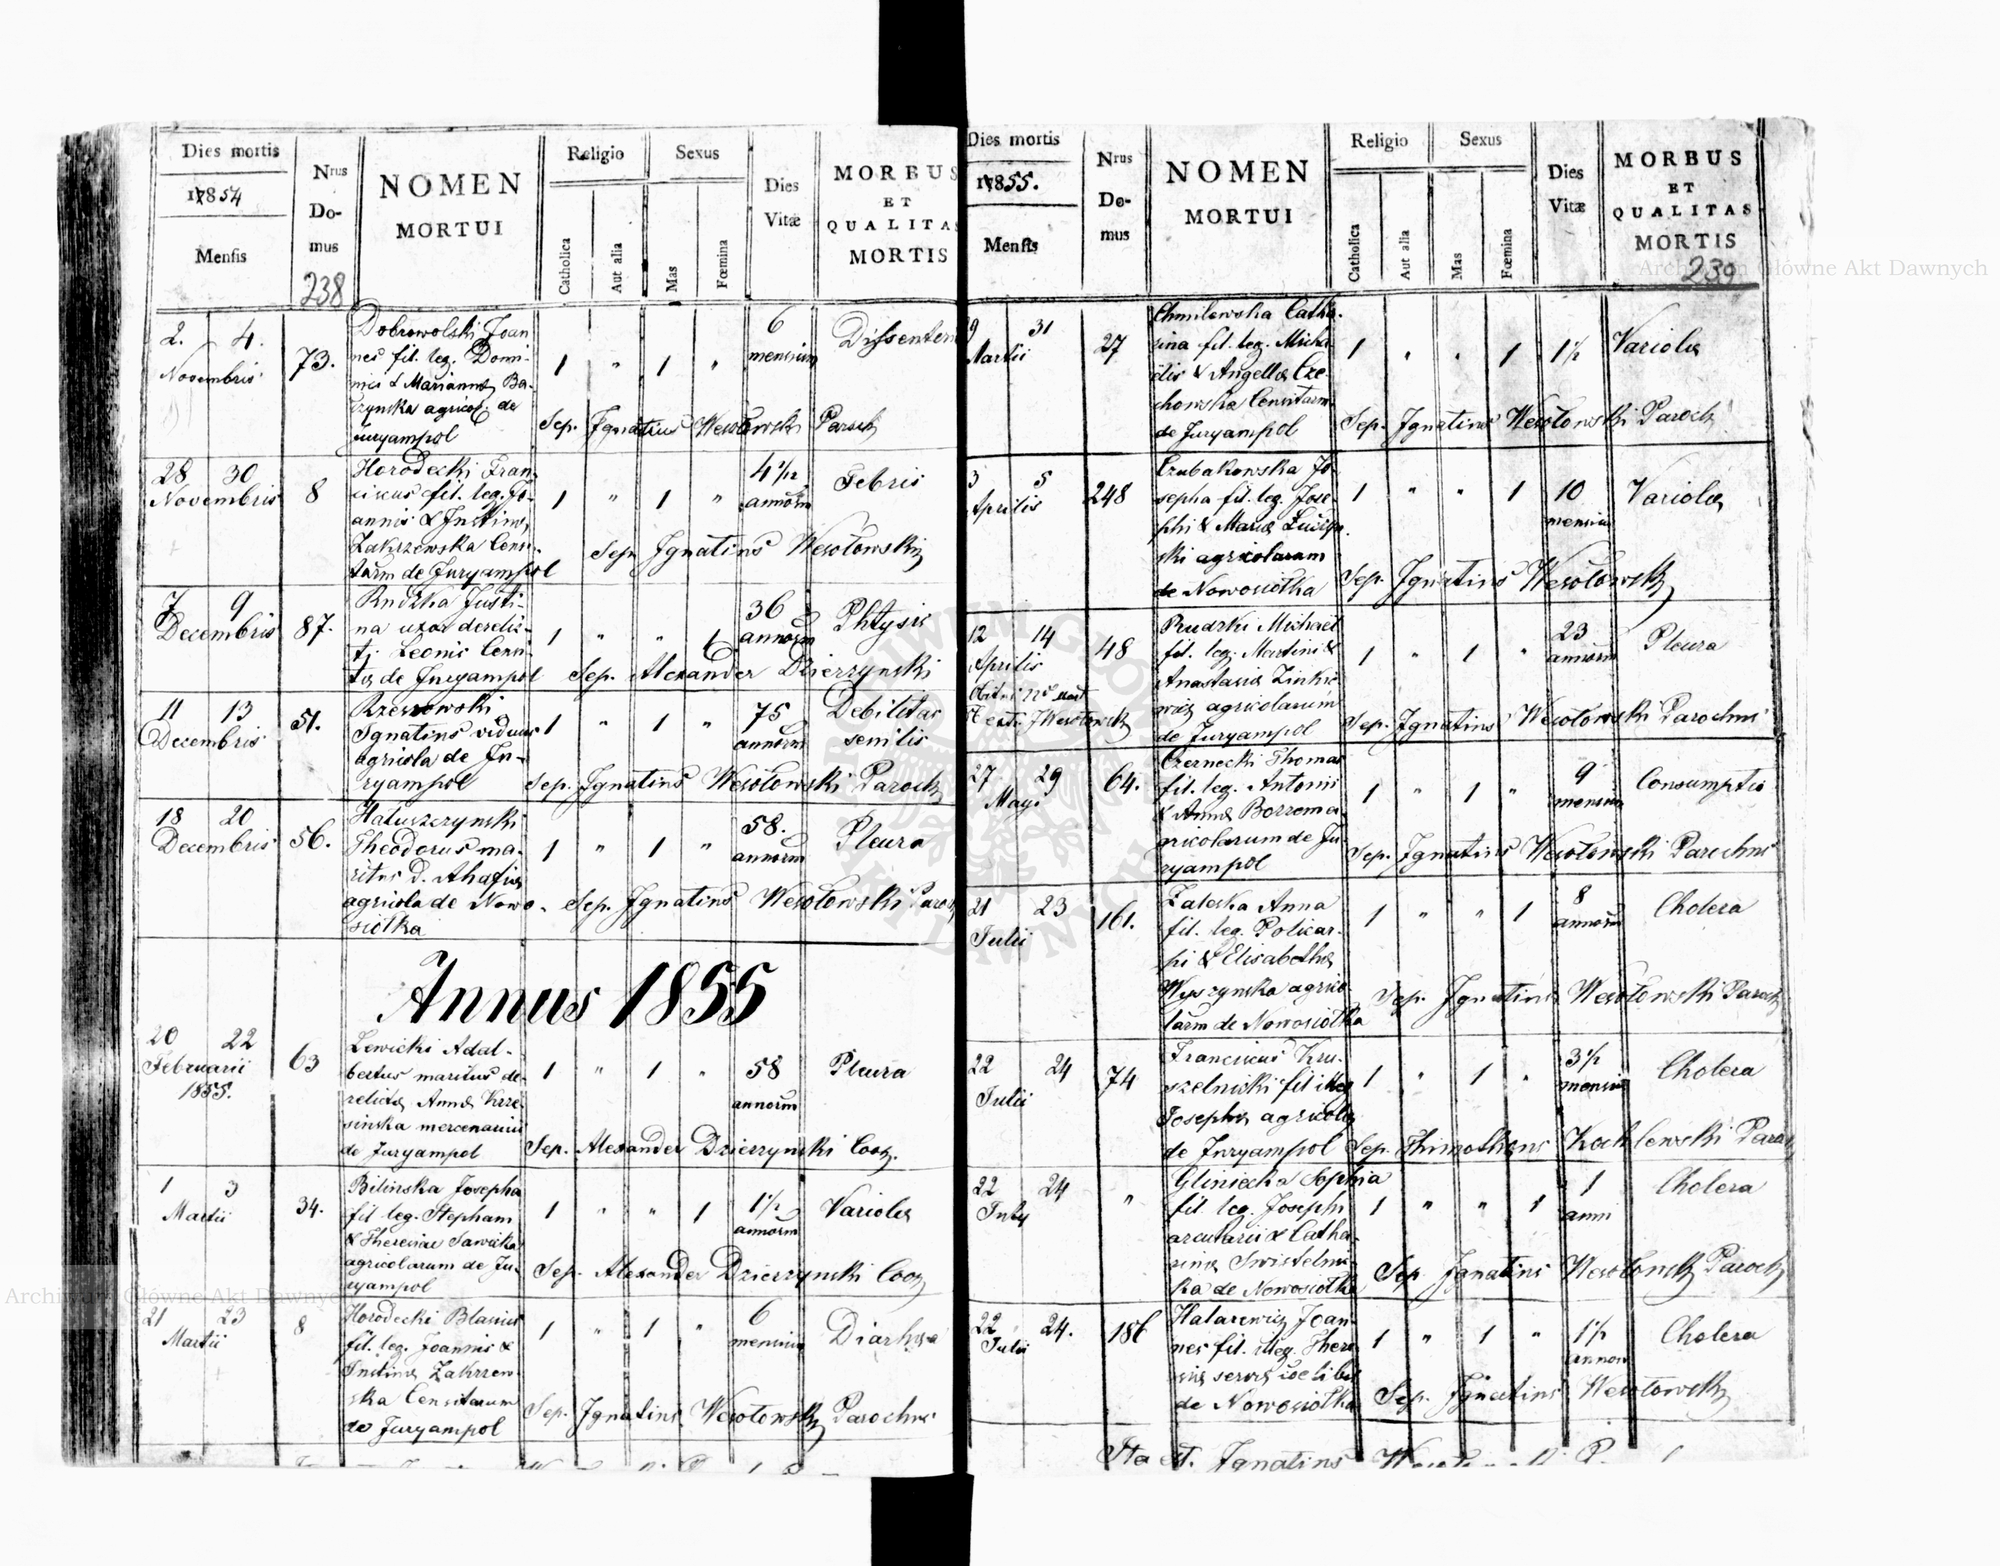 Dies mortis
Nrus
Do-
mus
NOMEN
MORTUI
Religio
Sexus
Dies
Vitæ
MORBUS
ET
QUALITAS
MORTIS
1854
Mensis
Catholica
Aut alia
Mas
Fœmina
238
2. 4.
Novembris
73.
Dobrowolski Joan
nes fil. leg. Domi-
nici & Mariannæ Ba-
czynska agricol. de
Juryampol
1 " 1 "
6
mensium
Dissenteri
Sep. Ignatius Wesołowski Paroch
28 30
Novembris
8
Horodecki Fran-
ciscus fil. leg. Jo-
annis & Justinæ
Zakrzewska Censi-
tarum de Juryampol
1 " 1 "
4 1/2
annorum
Febris
Sep. Ignatius Wesołowski
7 9
Decembris
87.
Rudzka Justi-
na uxor derelic-
ti Leonis Censi-
tæ de Juryampol
1 " " 1
36
annorum
Phtysis
Sep. Alexander Dzierzynski
11 13
Decembris
51.
Rzeszowski
Ignatius viduus
agricola de Ju-
ryampol
1 " 1 "
75
annorum
Debilitas
senilis
Sep. Ignatius Wesołowski Paroch
18 20
Decembris
56.
Theodorus ma-
ritus D. Ahafiæ
agricola de Nowo-
siołka
1 " 1 "
58.
annorum
Pleura
Sep. Ignatius Wesołowski Paroch
Annus 1855
20 22
Februarii
1855.
63
Lewicki Adal-
bertus maritus de-
relictæ Annæ Krze-
sinska mercenarius
de Juryampol
1 " 1 "
58
annorum
Pleura
Sep. Alexander Dzierzynski Coop.
1 3
Martii
34.
Bilinska Josepha
fil leg. Stephani
& Theresiae Sawicka
agricolarum de Ju-
ryampol
1 " " 1
1 1/2
annorum
Variolæ
Sep. Alexander Dzierzynski Coop
21 23
Martii
8
Horodecki Blasius
fil. leg. Joannis &
Justinæ Zakrzew-
ska Censitarum
de Juryampol
1 " 1 "
6
mensium
Diarhea
Sep. Ignatius Wesołowski Parochus
Dies mortis
Nrus
Do-
mus
NOMEN
MORTUI
Religio
Sexus
Dies
Vitæ
MORBUS
ET
QUALITAS
MORTIS
1855.
Mensis
Catholica
Aut alia
Mas
Fœmina
239
29 31
Martii
27
Chmilowska Catha-
rina fil. leg. Micha-
elis & Angelæ Cze-
chowska Censitarum
de Juryampol
1 " " 1
1 1/2
Variolæ
Sep. Ignatius Wesołowski Paroch
3 5
Aprilis
248
Czubakowska Jo-
sepha fil. leg. Jose-
phi & Mariæ
ski agricolarum
de Nowosiołka
1 " " 1
10
mensium
Variolæ
Sep. Ignatius Wesołowski
12 14
Aprilis
48
Rudzki Michael
fil. leg. Martini &
Anastasiæ Zinkie
wicz agricolarum
de Juryampol
1 " 1 "
23
annorum
Pleura
Sep. Ignatius Wesołowski Parochus
27 29
Maji
64.
Czernecki Thomas
fil. leg. Antonii
& Annæ Borzem a-
gricolarum de Ju
ryampol
1 " 1 "
9
mensium
Consumptio
Sep. Ignatius Wesołowski Parochus
21 23
Julii
161.
Zaleska Anna
fil. leg. Policar-
pi & Elisabethæ
Wyszynska agrico
larum de Nowosiołka
1 " " 1
8
annorum
Cholera
Sep. Ignatius Wesołowski Paroch
22 24
Julii
74
Franciscus Kru-
szelnicki fil illeg
Josephæ agricolæ
de Juryampol
1 " 1 "
3 1/2
mensium
Cholera
Sep. Thimotheus Kachlewski Paroch
22 24
July
"
Gliniecka Sophia
fil leg. Josephi
arcularii & Catha-
rinæ Swistelnic
ka de Nowosiołka
1 " " 1
1
anni
Cholera
Sep. Ignatius Wesołowski Paroch
22 24.
Julii
186
Hatarewicz Joan-
nes fil. illeg. There
siæ servæ coelibis
de Nowosiołka
1 " 1 "
1 1/2
annorum
Cholera
Sep. Ignatius Wesołowski
Ita est. Ignatius
Archiwum Główne Akt Dawnych
Archiwum Główne Akt Dawnych
ARCHIWUM GŁÓWNE AKT DAWNYCH